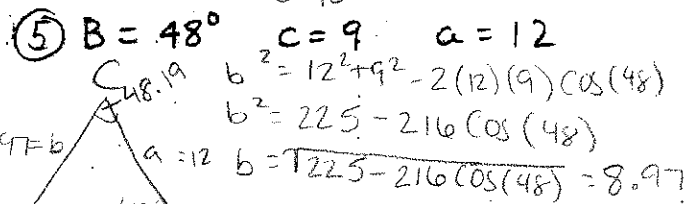 ⑤ B = 48° c = 9 a = 12
C 48.19 b² = 12² + 9² - 2(12)(9) Cos(48)
b² = 225 - 216 Cos(48)
97 = b a = 12 b = √225 - 216 Cos(48) = 8.97